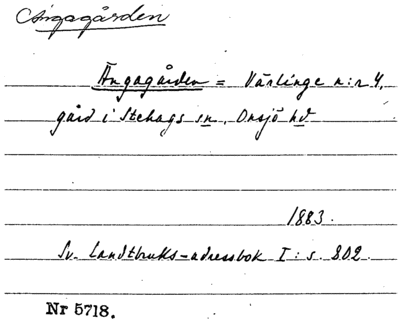 Ängagården
Ängagården = Värlinge n:r 4,
gård i Stehags sn, Onsjö hd
1883.
Sv. Landtbruks-adressbok I: s. 802.
Nr 5718.